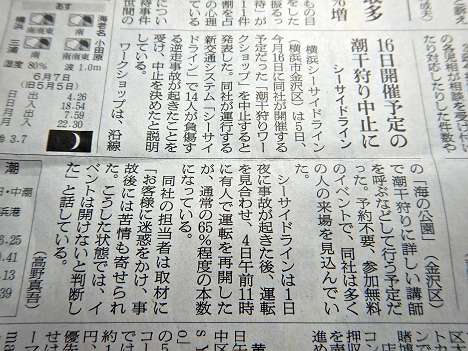 16日開催予定の
潮干狩り中止に
シーサイドライン
横浜シーサイドライン
（横浜市金沢区）は5日、
今月16日に同社が開催する
予定だった「潮干狩りワー
クショップ」を中止すると
発表した。同社が運行する
新交通システム「シーサイ
ドライン」で14人が負傷す
る逆走事故が起きたことを
受け、中止を決めたと説明
ワークショップは、沿線
の「海の公園」（金沢区）
で潮干狩りに詳しい講師
を呼ぶなどして行う予定だ
った。予約不要、参加無料
のイベントで、同社は多く
の人の来場を見込んでい
た。
シーサイドラインは1日
夜に事故が起きた後、運転
を見合わせ、4日午前11時
に有人で運転を再開した
が、通常の65％程度の本数
になっている。
同社の担当者は取材に
「お客様に迷惑をかけ、事
故後には苦情も寄せられ
た。こうした状態では、イ
ベントは開けないと判断し
た」と話している。
（高野真吾）
あす
海老名
小田原
三浦
湿度80%
波1.0m
6月7日
（旧5月5日）
日出 4.26
日入 18.54
月出 7.59
月入 22.30
3.7
潮